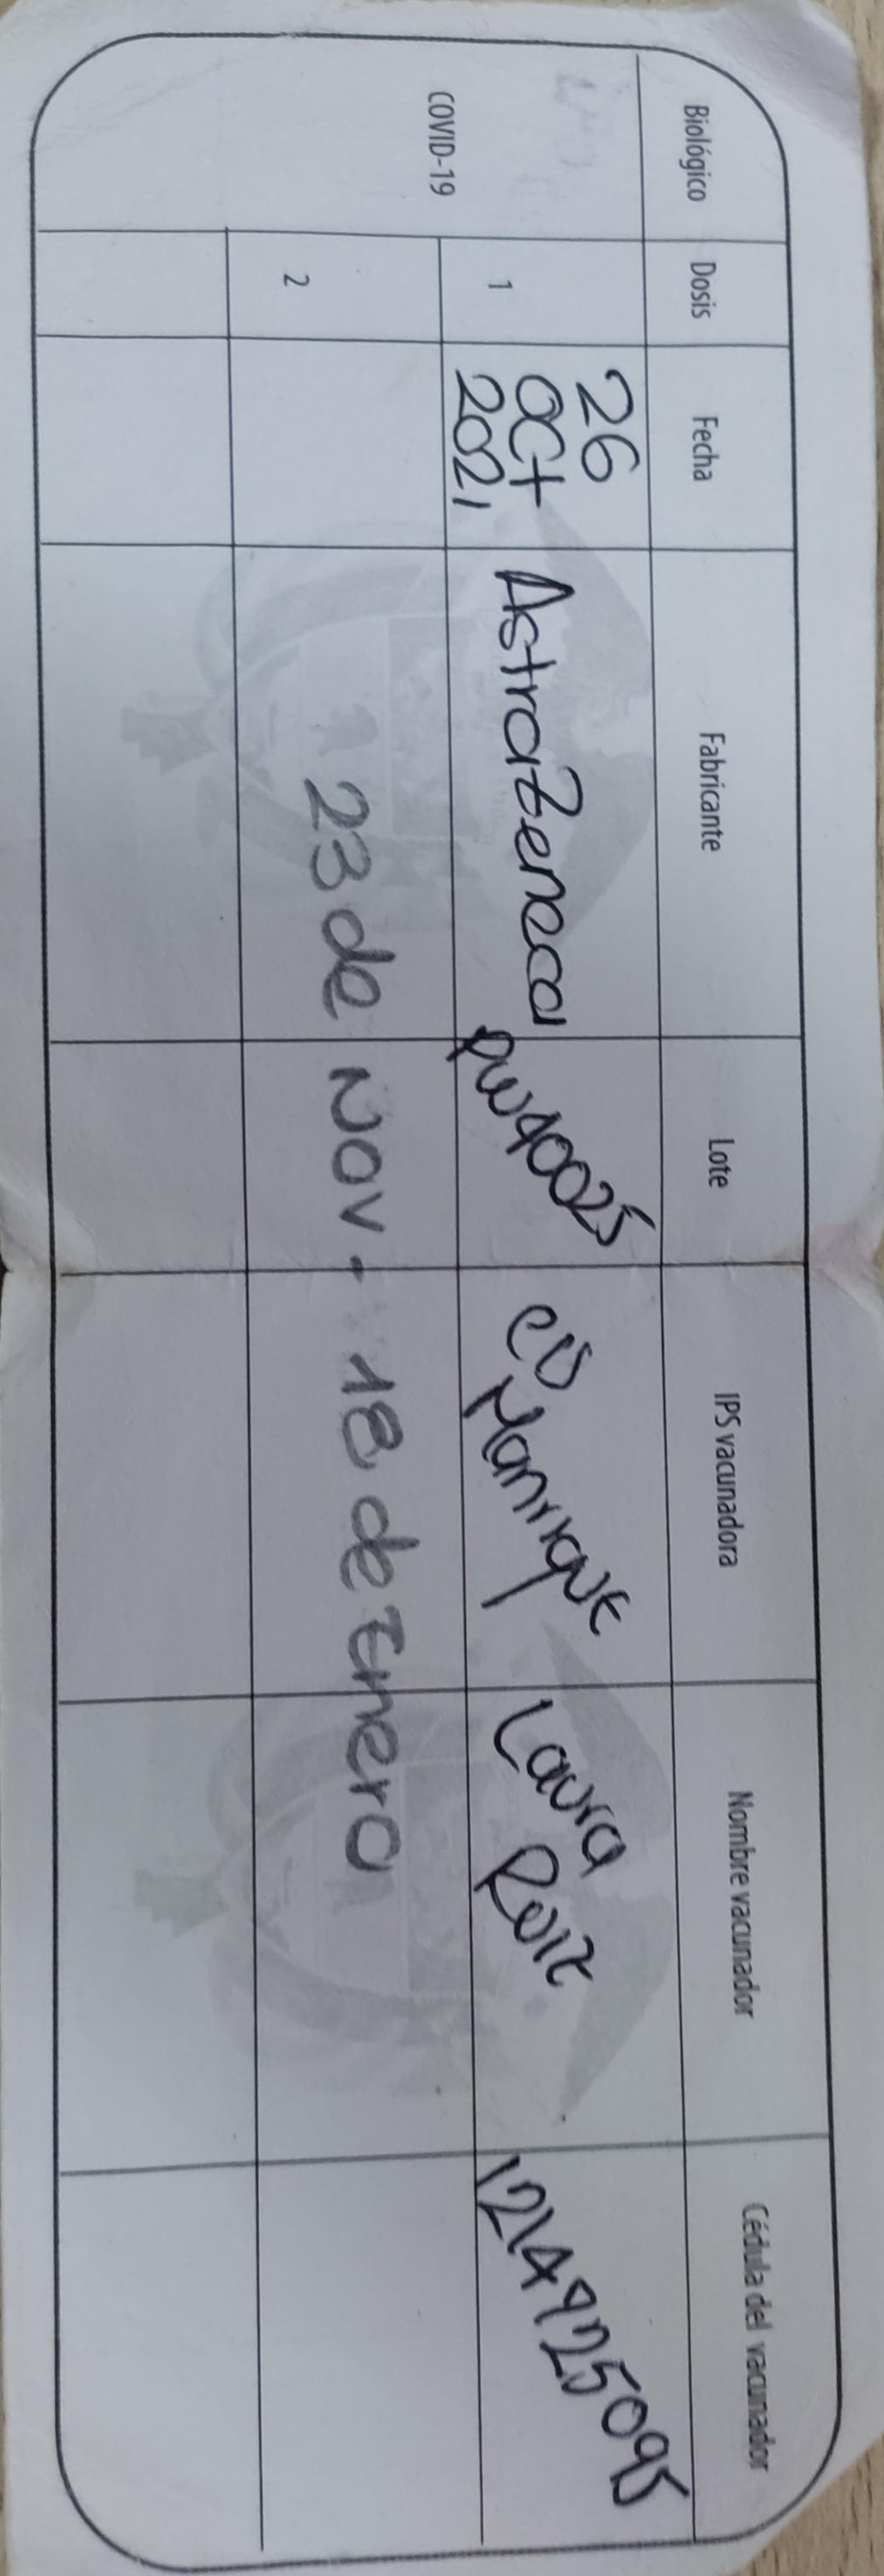 Biológico Dosis Fecha Fabricante Lote IPS vacunadora Nombre vacunador Cédula del vacunador
COVID-19
1 26 OCT 2021 AstraZeneca PW40025 CU Manrique Laura Ruiz 1214925095
2 23 de NOV - 18 de Enero